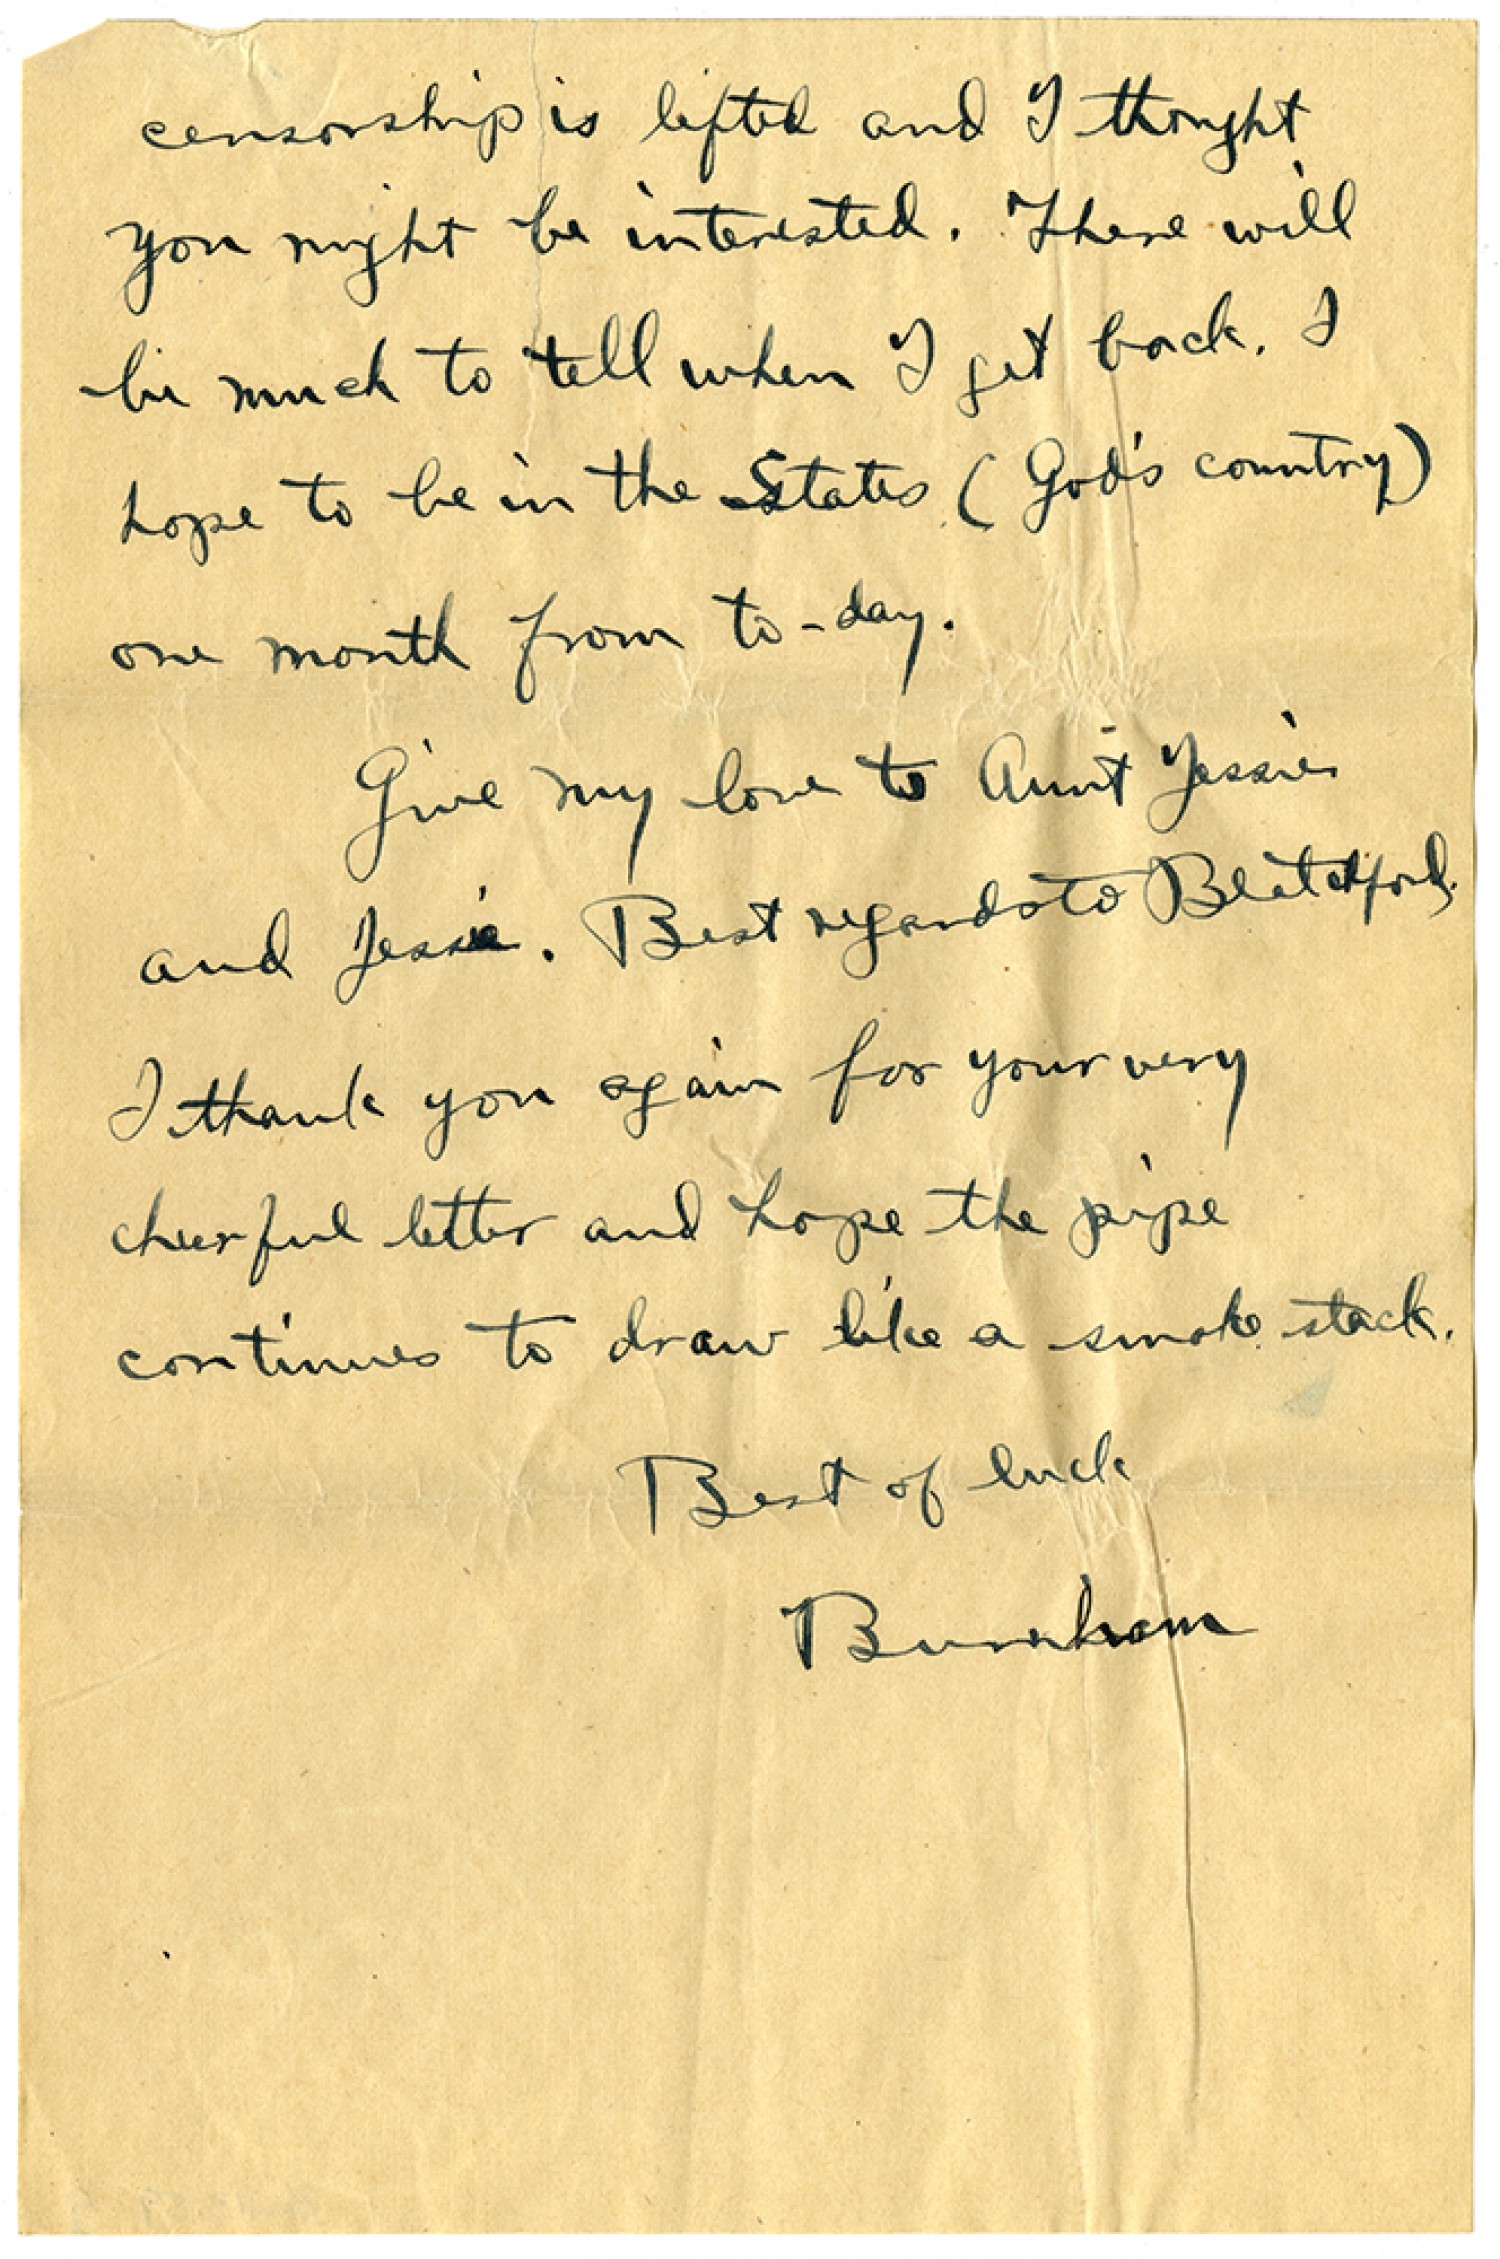 censorship is lifted and I thought
you might be interested. There will
be much to tell when I get back. I
hope to be in the States (God's country)
one month from to-day.
Give my love to Aunt Jessie
and Jessie. Best regards to Blatchford.
I thank you again for your very
cheerful letter and hope the pipe
continues to draw like a smoke stack.
Best of luck
Burnham